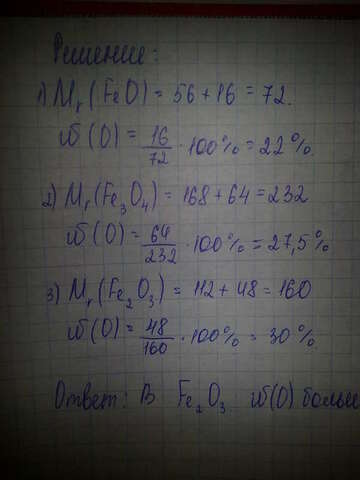 Решение:
1) Mr(FeO) = 56 + 16 = 72.
ω(O) = 16/72 · 100% = 22%.
2) Mr(Fe₃O₄) = 168 + 64 = 232
ω(O) = 64/232 · 100% = 27,5%
3) Mr(Fe₂O₃) = 112 + 48 = 160
ω(O) = 48/160 · 100% = 30%.
Ответ: В Fe₂O₃ ω(O) больше